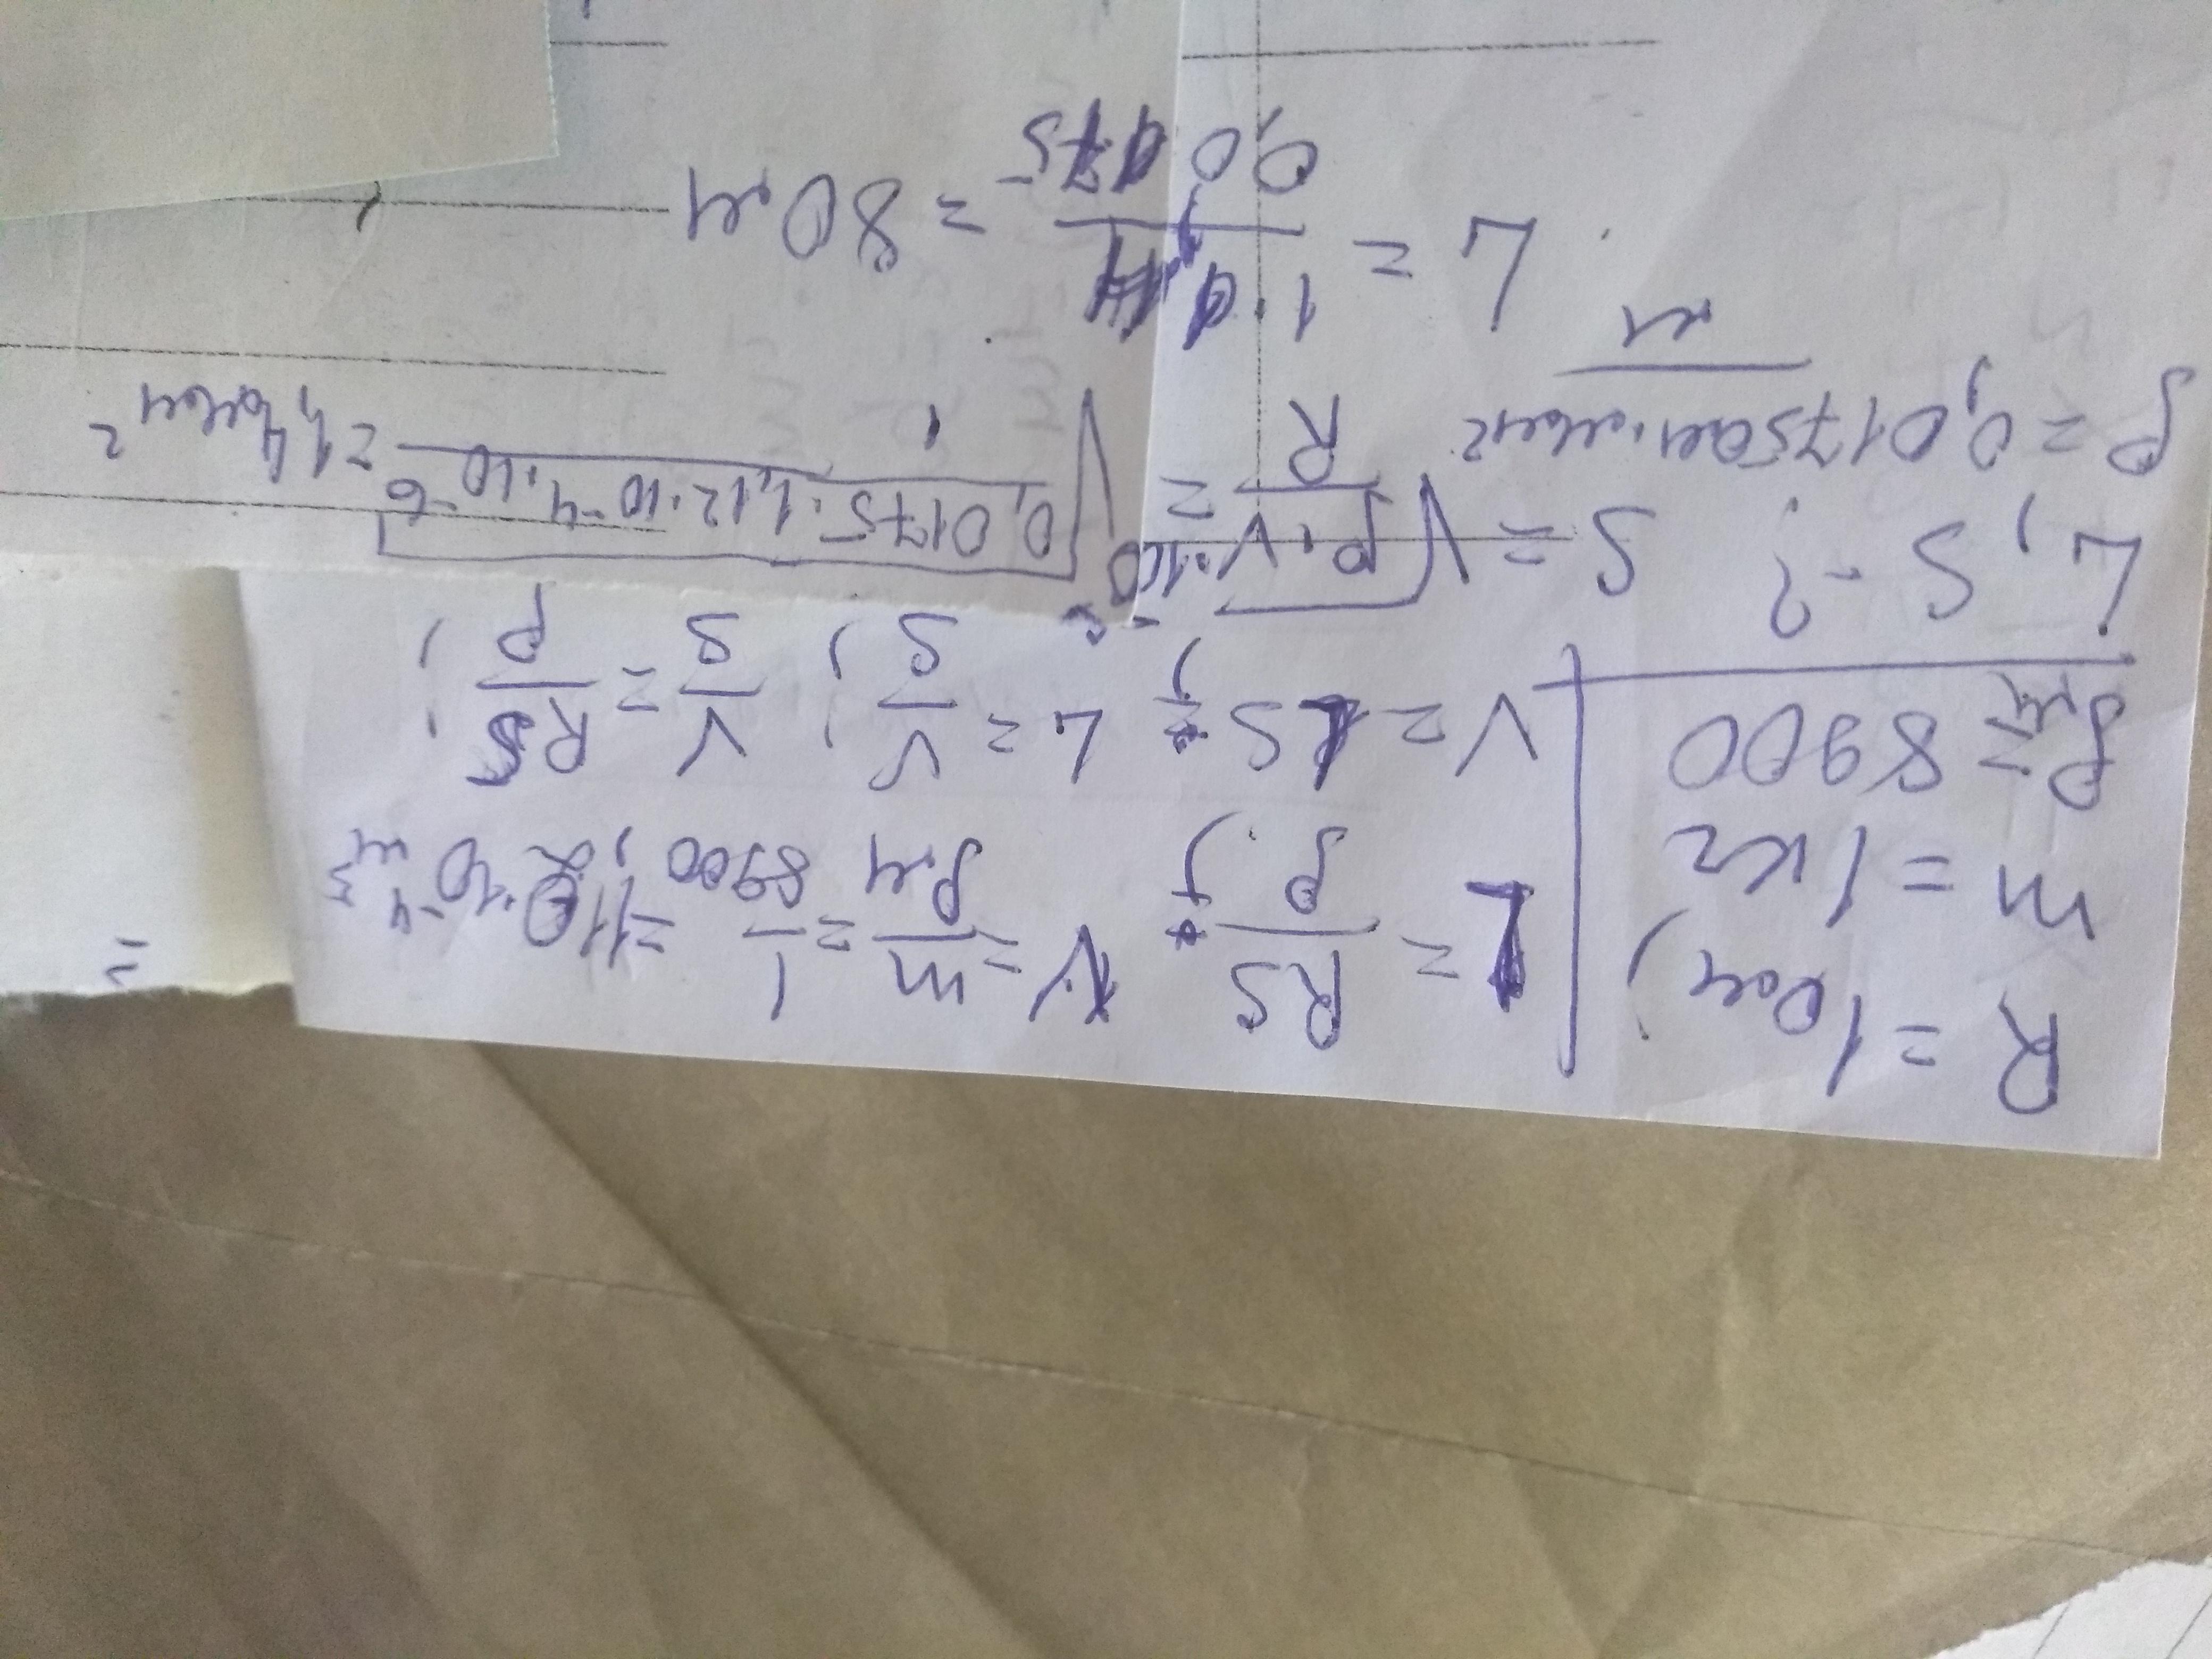 R = 1 Ом;
m = 1 кг
ρм = 8900
L, S - ?
ρ = 0,0175 Ом·мм²/м
L = RS/ρ; V = m/ρм = 1/8900 = 1,12·10⁻⁴ м³
V = LS; L = V/S; V/S = RS/ρ;
S = √(ρ·V·10⁻⁶/R) = √(0,0175·1,12·10⁻⁴·10⁻⁶/1) = 1,4 мм²
L = 1·1,4/0,0175 = 80 м
=